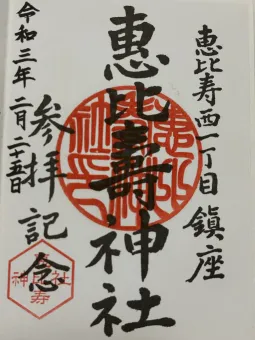 恵比寿西一丁目 鎮座
惠比壽神社
参拝記念
令和三年二月二十五日